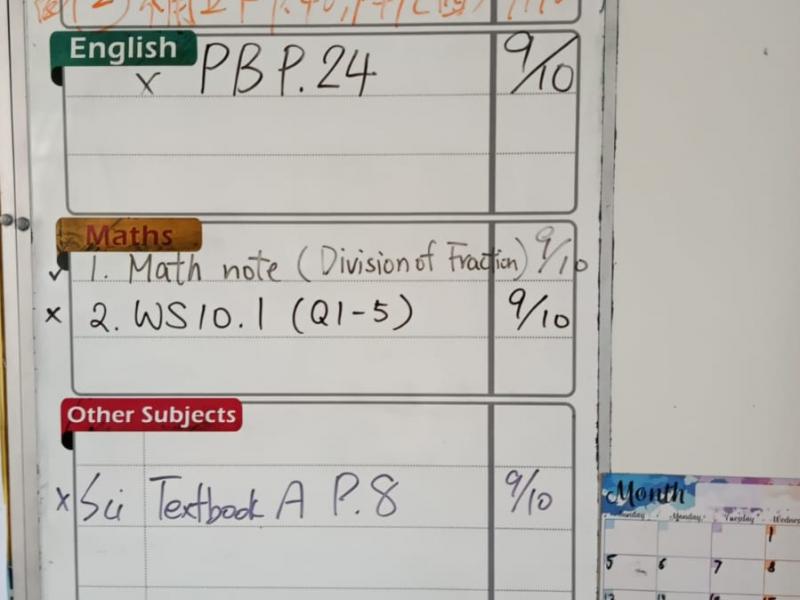 English
x PB P.24 9/10
Maths
✓ 1. Math note (Division of Fraction) 9/10
x 2. WS10.1 (Q1-5) 9/10
Other Subjects
x Sci Textbook A P.8 9/10
Month
Sunday Monday Tuesday
1
5 6 7 8